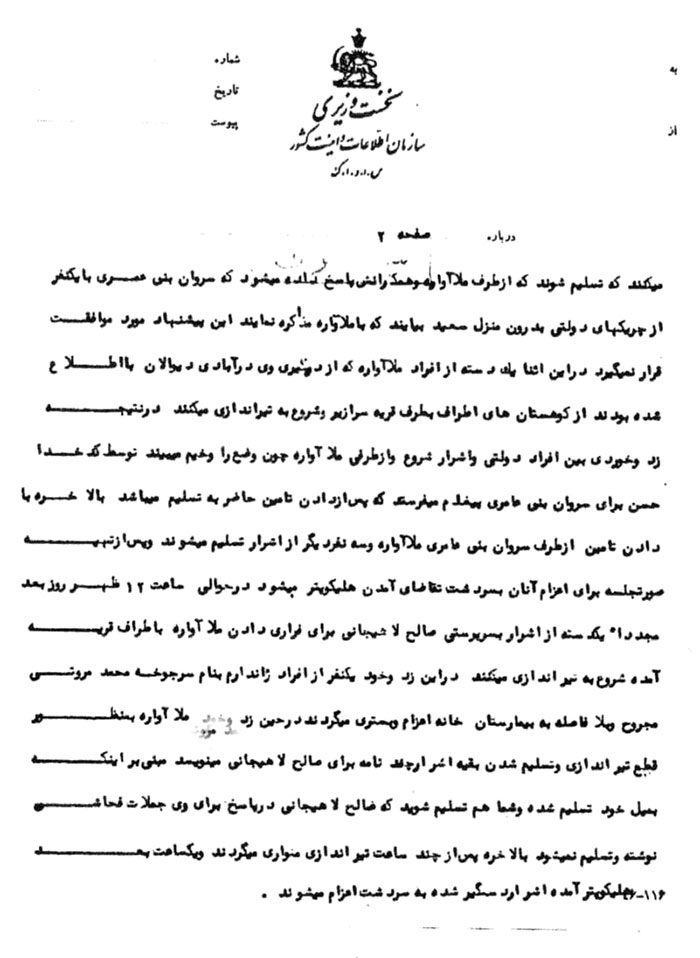 به
از
شماره
تاریخ
پیوست
نخست وزیری
سازمان اطلاعات و امنیت کشور
س.ا.و.ا.ک
درباره
صفحه ۲
میکنند که تسلیم شوند که ازطرف ملاآواره وهمکارانش پاسخ داده میشود که سروان بنی عمری با یکنفر
از چریکهای دولتی بدرون منزل سعید بیایند که با ملاآواره مذاکره نمایند این پیشنهاد مورد موافقت
قرار نمیگیرد دراین اثنا یك دسته از افراد ملاآواره که از دستگیری وی درآبادی دیوالان بااطلاع
شده بودند از کوهستان های اطراف بطرف قریه سرازیر وشروع به تیراندازی میکنند درنتیجه
زد وخوردی بین افراد دولتی واشرار شروع وازطرفی ملا آواره چون وضع را وخیم میبیند توسط کدخدا
حسن برای سروان بنی عامری پیغام میفرستد که پس ازدادن تامین حاضر به تسلیم میباشد بالاخره با
دادن تامین ازطرف سروان بنی عامری ملاآواره وسه نفردیگر از اشرار تسلیم میشوند وپس ازتهیه
صورتجلسه برای اعزام آنان بسردشت تقاضای آمدن هلیکوپتر میشود درحوالی ساعت ۱۲ ظهر روز بعد
مجددا" یکدسته از اشرار بسرپرستی صالح لاهیجانی برای فراری دادن ملاآواره باطراف قریه
آمده شروع به تیراندازی میکنند دراین زد وخورد یکنفر از افراد ژاندارم بنام سرجوخه محمد مروتی
مجروح وبلا فاصله به بیمارستان خانه اعزام وبستری میگردند درحین زد وخورد ملا آواره بمنظور
قطع تیراندازی وتسلیم شدن بقیه اشرارچند نامه برای صالح لاهیجانی مینویسد مبنی بر اینکه
بمیل خود تسلیم شده وشما هم تسلیم شوید که صالح لاهیجانی درپاسخ برای وی جملات فحاشی
نوشته وتسلیم نمیشود بالاخره پس از چند ساعت تیراندازی متواری میگردند ویکساعت بعد
هلیکوپتر آمده اشرار دستگیر شده به سردشت اعزام میشوند .
۱۱۶-۲۶